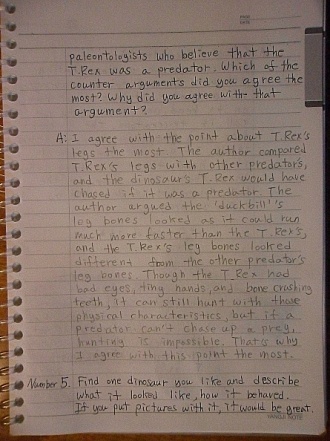 paleontologists who believe that the
T.Rex was a predator. Which of the
counter arguments did you agree the
most? Why did you agree with that
argument?
A: I agree with the point about T.Rex's
legs the most. The author compared
T.Rex's legs with other predators,
and the dinosaur's T.Rex would have
chased if it was a predator. The
author argued the 'duckbill's
leg bones looked as it could run
much more faster than the T.Rex's,
and the T.Rex's leg bones looked
different from the other predator's
leg bones. Though the T.Rex had
bad eyes, tiny hands, and bone crushing
teeth, it can still hunt with those
physical characteristics, but if a
predator can't chase up a prey,
hunting is impossible. That's why
I agree with this point the most.
Number 5. Find one dinosaur you like and describe
what it looked like, how it behaved.
If you put pictures with it, it would be great.